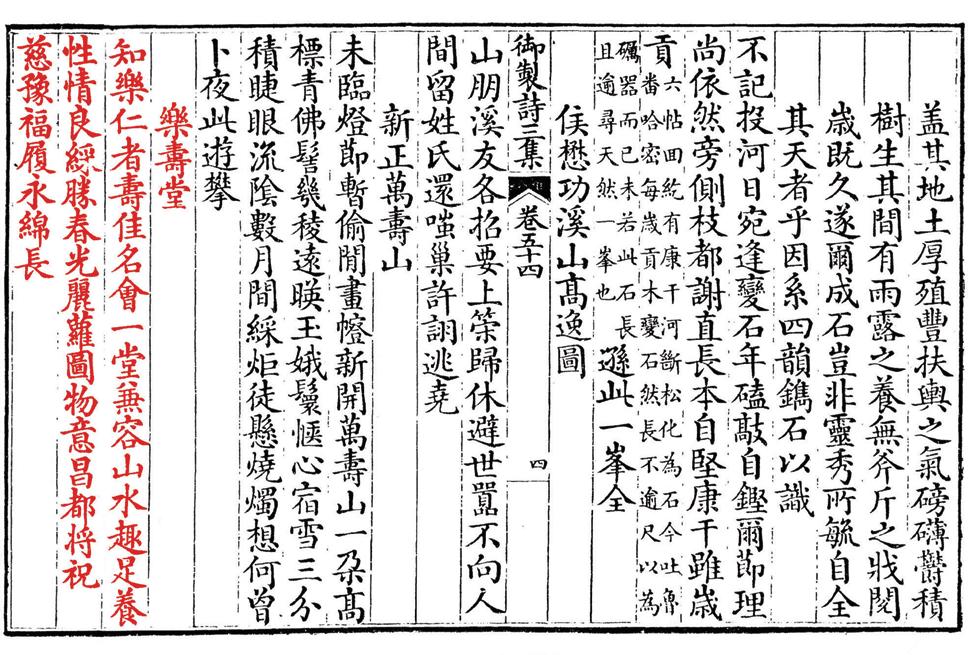 蓋其地土厚殖豐扶輿之氣磅礴欝積
樹生其間有雨露之養無斧斤之戕閱
歲既久遂爾成石豈非靈秀所毓自全
其天者乎因系四韻鐫石以識
不記投河日宛逢變石年磕敲自鏗爾節理
尚依然旁側枝都謝直長本自堅康干雖歲
貢六帖回紇有康干河斷松化為石今吐魯
番哈密每歲貢木變石然長不逾尺以為
礪器而已未若此石長
且逾尋天然一峯也遜此一峯全
侯懋功溪山高逸圖
御製詩三集 卷五十四 四
山朋溪友各招要上筞歸休避世囂不向人
間留姓氏還嗤巢許詡逃堯
新正萬壽山
未臨燈節暫偷閒畫幰新開萬壽山一朶高
標青佛髻幾稜遠暎玉娥鬟愜心宿雪三分
積睫眼流陰數月間綵炬徒懸燒燭想何曾
卜夜此遊攀
樂壽堂
知樂仁者壽佳名會一堂兼容山水趣足養
性情良綵勝春光麗蘿圖物意昌都將祝
慈豫福履永綿長